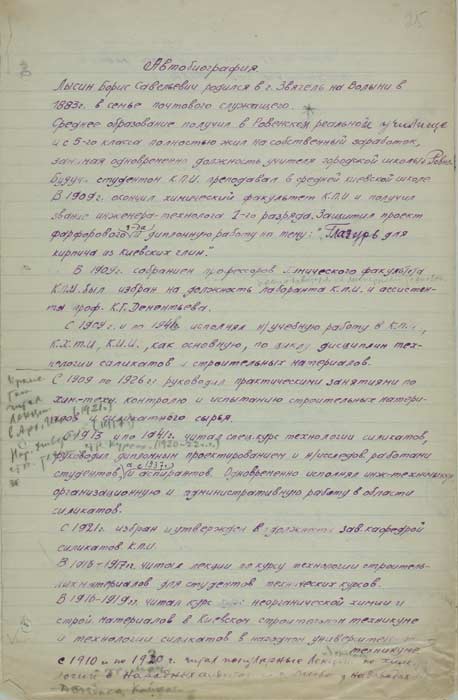 25
Автобиография.
Лысин Борис Савельевич родился в г. Звягель на Волыни в
1883г. в семье почтового служащего.
Среднее образование получил в Ровенском реальном училище
и с 5-го класса полностью жил на собственный заработок,
занимая одновременно должность учителя городской школы г. Ровно.
Будучи студентом К.П.И. преподавал в средней киевской школе
В 1909г. окончил химический факультет К.П.И и получил
звание инженера-технолога I-го разряда, Защитил проект
фарфорового з-да и дипломную работу на тему: "Глазурь для
кирпича из Киевских глин."
В 1909г. собранием профессоров химического факультета
К.П.И. был избран на должность лаборанта К.П.И. и ассистен-
ты проф. К.Г. Дементьева.
С 1909г. и по 194 исполнял н/учебную работу в К.П.И.,
К.Х.Т.И, К.И.И., как основную, по циклу дисциплин тех-
нологии силикатов и строительных материалов.
С 1909 по 1926г. руководил практическими занятиями по
хим-техн. контролю и испытанию строительных матери-
алов и силикатного сырья.
С 1913 и по 1941г. читал спец.курс технологии силикатов,
руководил дипломным проектированием и н/исслед. работами
студентов, (а с 1937г.) и аспирантов. Одновременно исполнял инж-техническую
организационную и административную работу в области
силикатов.
С 1921г. избран и утвержден в должности зав.кафедрой
силикатов К.П.И.
В 1916-1917г. читал лекции по курсу технологии строитель-
ных материалов для студентов технических курсов.
В 1916-1919г. читал курс неорганической химии и
строй материалов в Киевском строительном техникуме
и технологии силикатов в народном университете
техникуме
с 1910 и по 1920 г. читал популярные лекции по хим-
логии в Народных